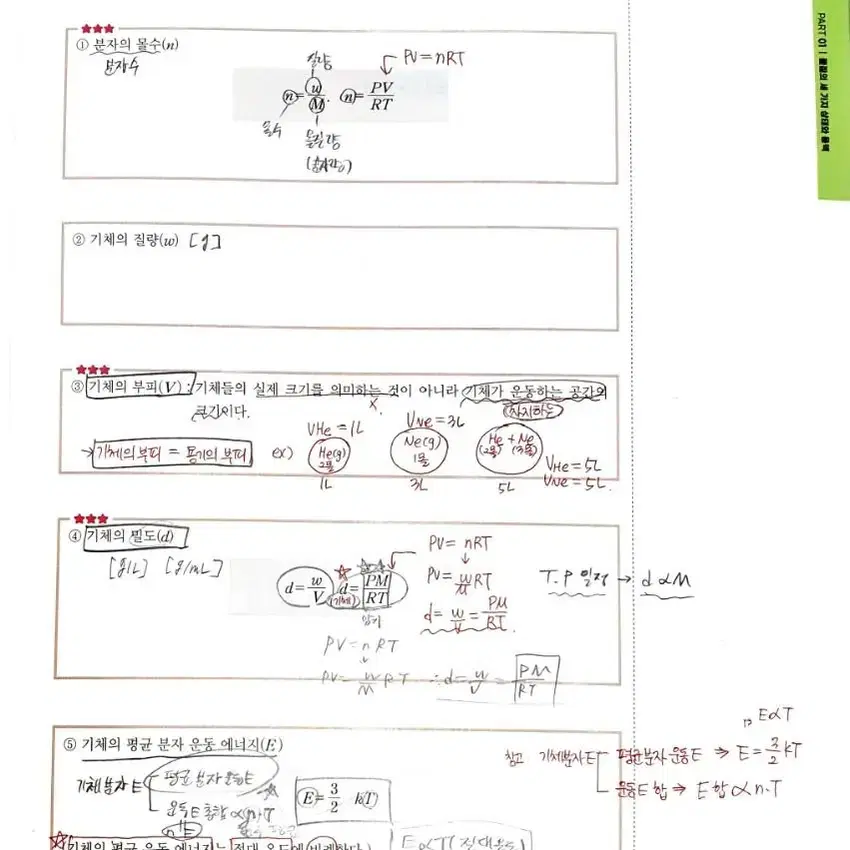 PART 01 | 물질의 세 가지 상태와 용액
① 분자의 몰수(n)
분자수
질량
PV = nRT
n = w/M, n = PV/RT
몰수
몰질량
(분자량)
② 기체의 질량(w) [g]
③ 기체의 부피(V) : 기체들의 실제 크기를 의미하는 것이 아니라 기체가 운동하는 공간의
크기이다.
X
차지하는
→ 기체의 부피 = 용기의 부피
ex)
VHe = 1L
He(g)
2몰
1L
VNe = 3L
Ne(g)
1몰
3L
He + Ne
(2몰) (3몰)
5L
VHe = 5L
VNe = 5L.
④ 기체의 밀도(d)
[g/L] [g/mL]
d = w/V
d = PM/RT
(기체)
암기
PV = nRT
↓
PV = w/M RT
d = w/V = PM/RT
T.P 일정 → d ∝ M
PV = nRT
↓
PV = w/M RT ∴ d = w/V = PM/RT
⑤ 기체의 평균 분자 운동 에너지(E)
기체분자 E
평균 분자 운동E
운동E 총합 ∝ n·T
E = 3/2 kT
E∝T
참고 기체분자 E
평균분자 운동E ⇒ E = 3/2 kT
운동E 합 ⇒ E합 ∝ n·T
기체의 평균 운동 에너지는 절대 온도에 비례한다.)
E∝T (절대온도)